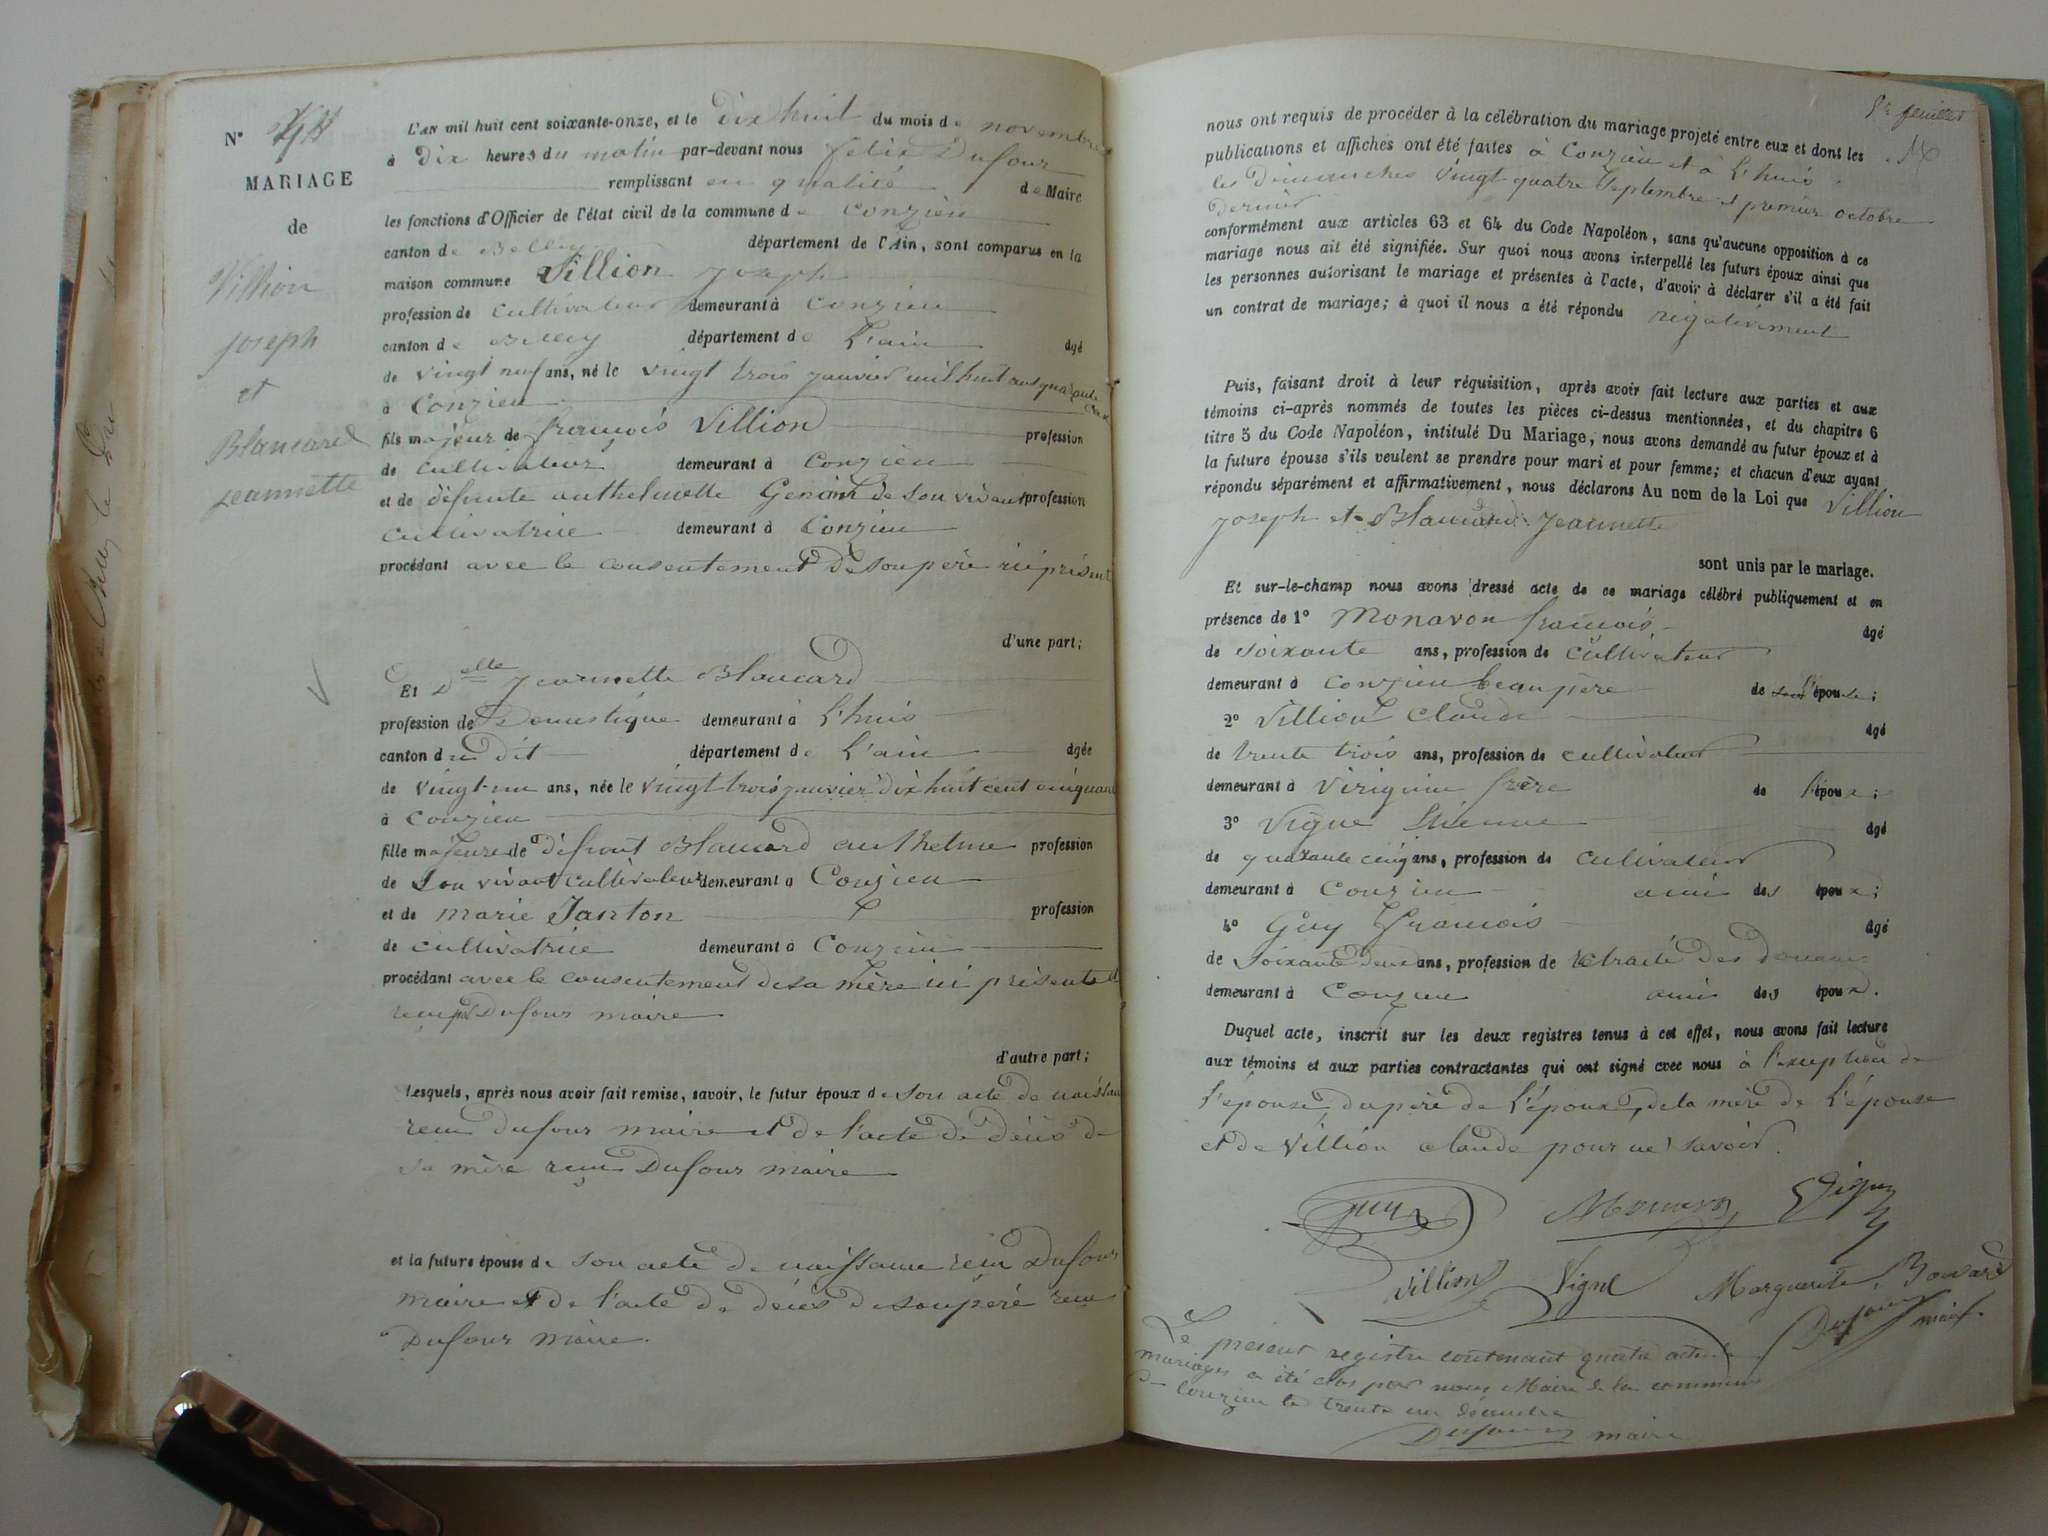 N° 4
MARIAGE
de
Villion
Joseph
et
Blancard
Jeannette
L'AN mil huit cent soixante-onze, et le dix huit du mois de novembre
à dix heures du matin par-devant nous félix Dufour
remplissant en qualité de Maire
les fonctions d'Officier de l'état civil de la commune de Conzieu
canton de Belley département de l'Ain, sont comparus en la
maison commune Villion Joseph
profession de cultivateur demeurant à Conzieu
canton de Belley département de L'ain âgé
de vingt neuf ans, né le vingt trois janvier mil huit cent quarante deux
à Conzieu
fils majeur de françois Villion profession
de cultivateur demeurant à Conzieu
et de défunte anthelmette de son vivant profession
cultivatrice demeurant à Conzieu
procédant avec le consentement de son père ici présent
d'une part;
Et Delle Jeannette Blancard
profession de Domestique demeurant à L'huis
canton du dit département de L'ain âgée
de vingt-un ans, née le vingt trois janvier dix huit cent cinquante
à Conzieu
fille majeure de défunt Blancard anthelme profession
de son vivant cultivateur demeurant à Conzieu
et de marie Janton profession
de cultivatrice demeurant à Conzieu
procédant avec le consentement de sa mère ici présente et
reçu par Dufour maire
d'autre part;
Lesquels, après nous avoir fait remise, savoir, le futur époux de son acte de naissance
reçu Dufour maire et de l'acte de décès de
sa mère reçu Dufour maire
et la future épouse de son acte de naissance reçu Dufour
maire et de l'acte de décès de son père reçu
Dufour maire.
feuillet
nous ont requis de procéder à la célébration du mariage projeté entre eux et dont les
publications et affiches ont été faites à Conzieu et à L'huis
les dimanches vingt quatre Septembre et premier octobre
dernier
conformément aux articles 63 et 64 du Code Napoléon, sans qu'aucune opposition à ce
mariage nous ait été signifiée. Sur quoi nous avons interpellé les futurs époux ainsi que
les personnes autorisant le mariage et présentes à l'acte, d'avoir à déclarer s'il a été fait
un contrat de mariage; à quoi il nous a été répondu négativement
Puis, faisant droit à leur réquisition, après avoir fait lecture aux parties et aux
témoins ci-après nommés de toutes les pièces ci-dessus mentionnées, et du chapitre 6
titre 5 du Code Napoléon, intitulé Du Mariage, nous avons demandé au futur époux et à
la future épouse s'ils veulent se prendre pour mari et pour femme; et chacun d'eux ayant
répondu séparément et affirmativement, nous déclarons Au nom de la Loi que Villion
Joseph et Blancard Jeannette
sont unis par le mariage.
Et sur-le-champ nous avons dressé acte de ce mariage célébré publiquement et en
présence de 1° Monavon françois âgé
de soixante ans, profession de cultivateur
demeurant à Conzieu beaupère de l'épouse;
2° Villion Claude âgé
de trente trois ans, profession de cultivateur
demeurant à Virignin frère de l'époux;
3° Vigne Etienne âgé
de quarante cinq ans, profession de cultivateur
demeurant à Conzieu ami des époux;
4° Guy François âgé
de soixante deux ans, profession de retraité des douanes
demeurant à Conzieu ami des époux.
Duquel acte, inscrit sur les deux registres tenus à cet effet, nous avons fait lecture
aux témoins et aux parties contractantes qui ont signé avec nous à l'exception de
l'épouse, du père de l'époux, de la mère de l'épouse
et de Villion claude pour ne savoir.
Guy Monavon
Villion Vigne Marguerite Bovard
Dufour maire
Le présent registre contenant quatre actes de
mariages a été clos par nous Maire de la commune
de Conzieu le trente un décembre
Dufour maire